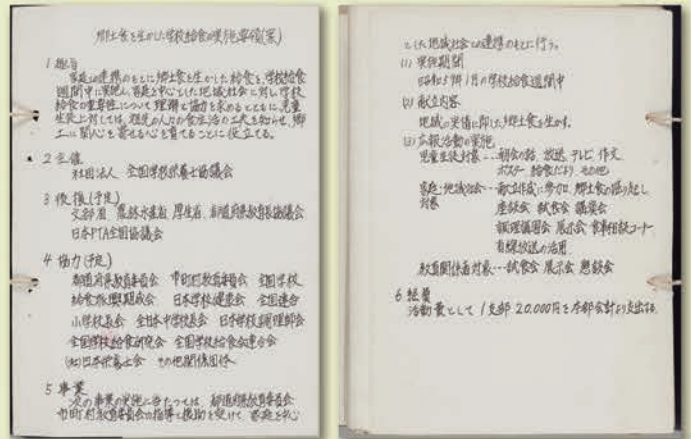 郷土食を生かした学校給食の実施要領(案)
1 趣旨
家庭との連携のもとに郷土食を生かした給食を、学校給食
週間中に実施し、家庭を中心とした地域社会に対し、学校
給食の重要性について理解と協力を求めるとともに、児童
生徒に対しては、祖先の人たちの食生活の工夫を知らせ、郷
土に関心を寄せる心を育てることに役立てる。
2 主催
社団法人 全国学校栄養士協議会
3 後援(予定)
文部省 農林水産省 厚生省 都道府県教育長協議会
日本PTA全国協議会
4 協力(予定)
都道府県教育委員会 市町村教育委員会 全国学校
給食振興期成会 日本学校健康会 全国連合
小学校長会 全日本中学校長会 日本学校調理師会
全国学校給食研究会 全国学校給食会連合会
(社)日本栄養士会 その他関係団体
5 事業
次の事業の実施に当たっては、都道府県教育委員会
市町村教育委員会の指導と援助を受けて、家庭を中心
とした地域社会との連携のもとに行う。
(1) 実施期間
昭和59年1月の学校給食週間中
(2) 献立内容
地域の実情に即した郷土食を生かす。
(3) 広報活動の実施
児童生徒対象…朝会の話 放送 テレビ 作文
ポスター 給食だより その他
家庭・地域社会…献立作成に参加、郷土食の掘り起し
対象 座談会 試食会 講演会
調理講習会 展示会 食事相談コーナー
有線放送の活用
教育関係者対象…試食会 展示会 懇談会
6 経費
活動費として 1支部 20,000円を本部会計より支出する